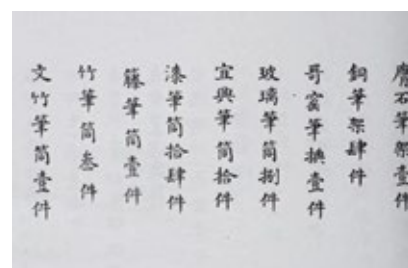 石筆架壹件
銅筆架肆件
哥窰筆掭壹件
玻璃筆筒捌件
宜興筆筒拾件
漆筆筒拾肆件
籐筆筒壹件
竹筆筒叁件
文竹筆筒壹件